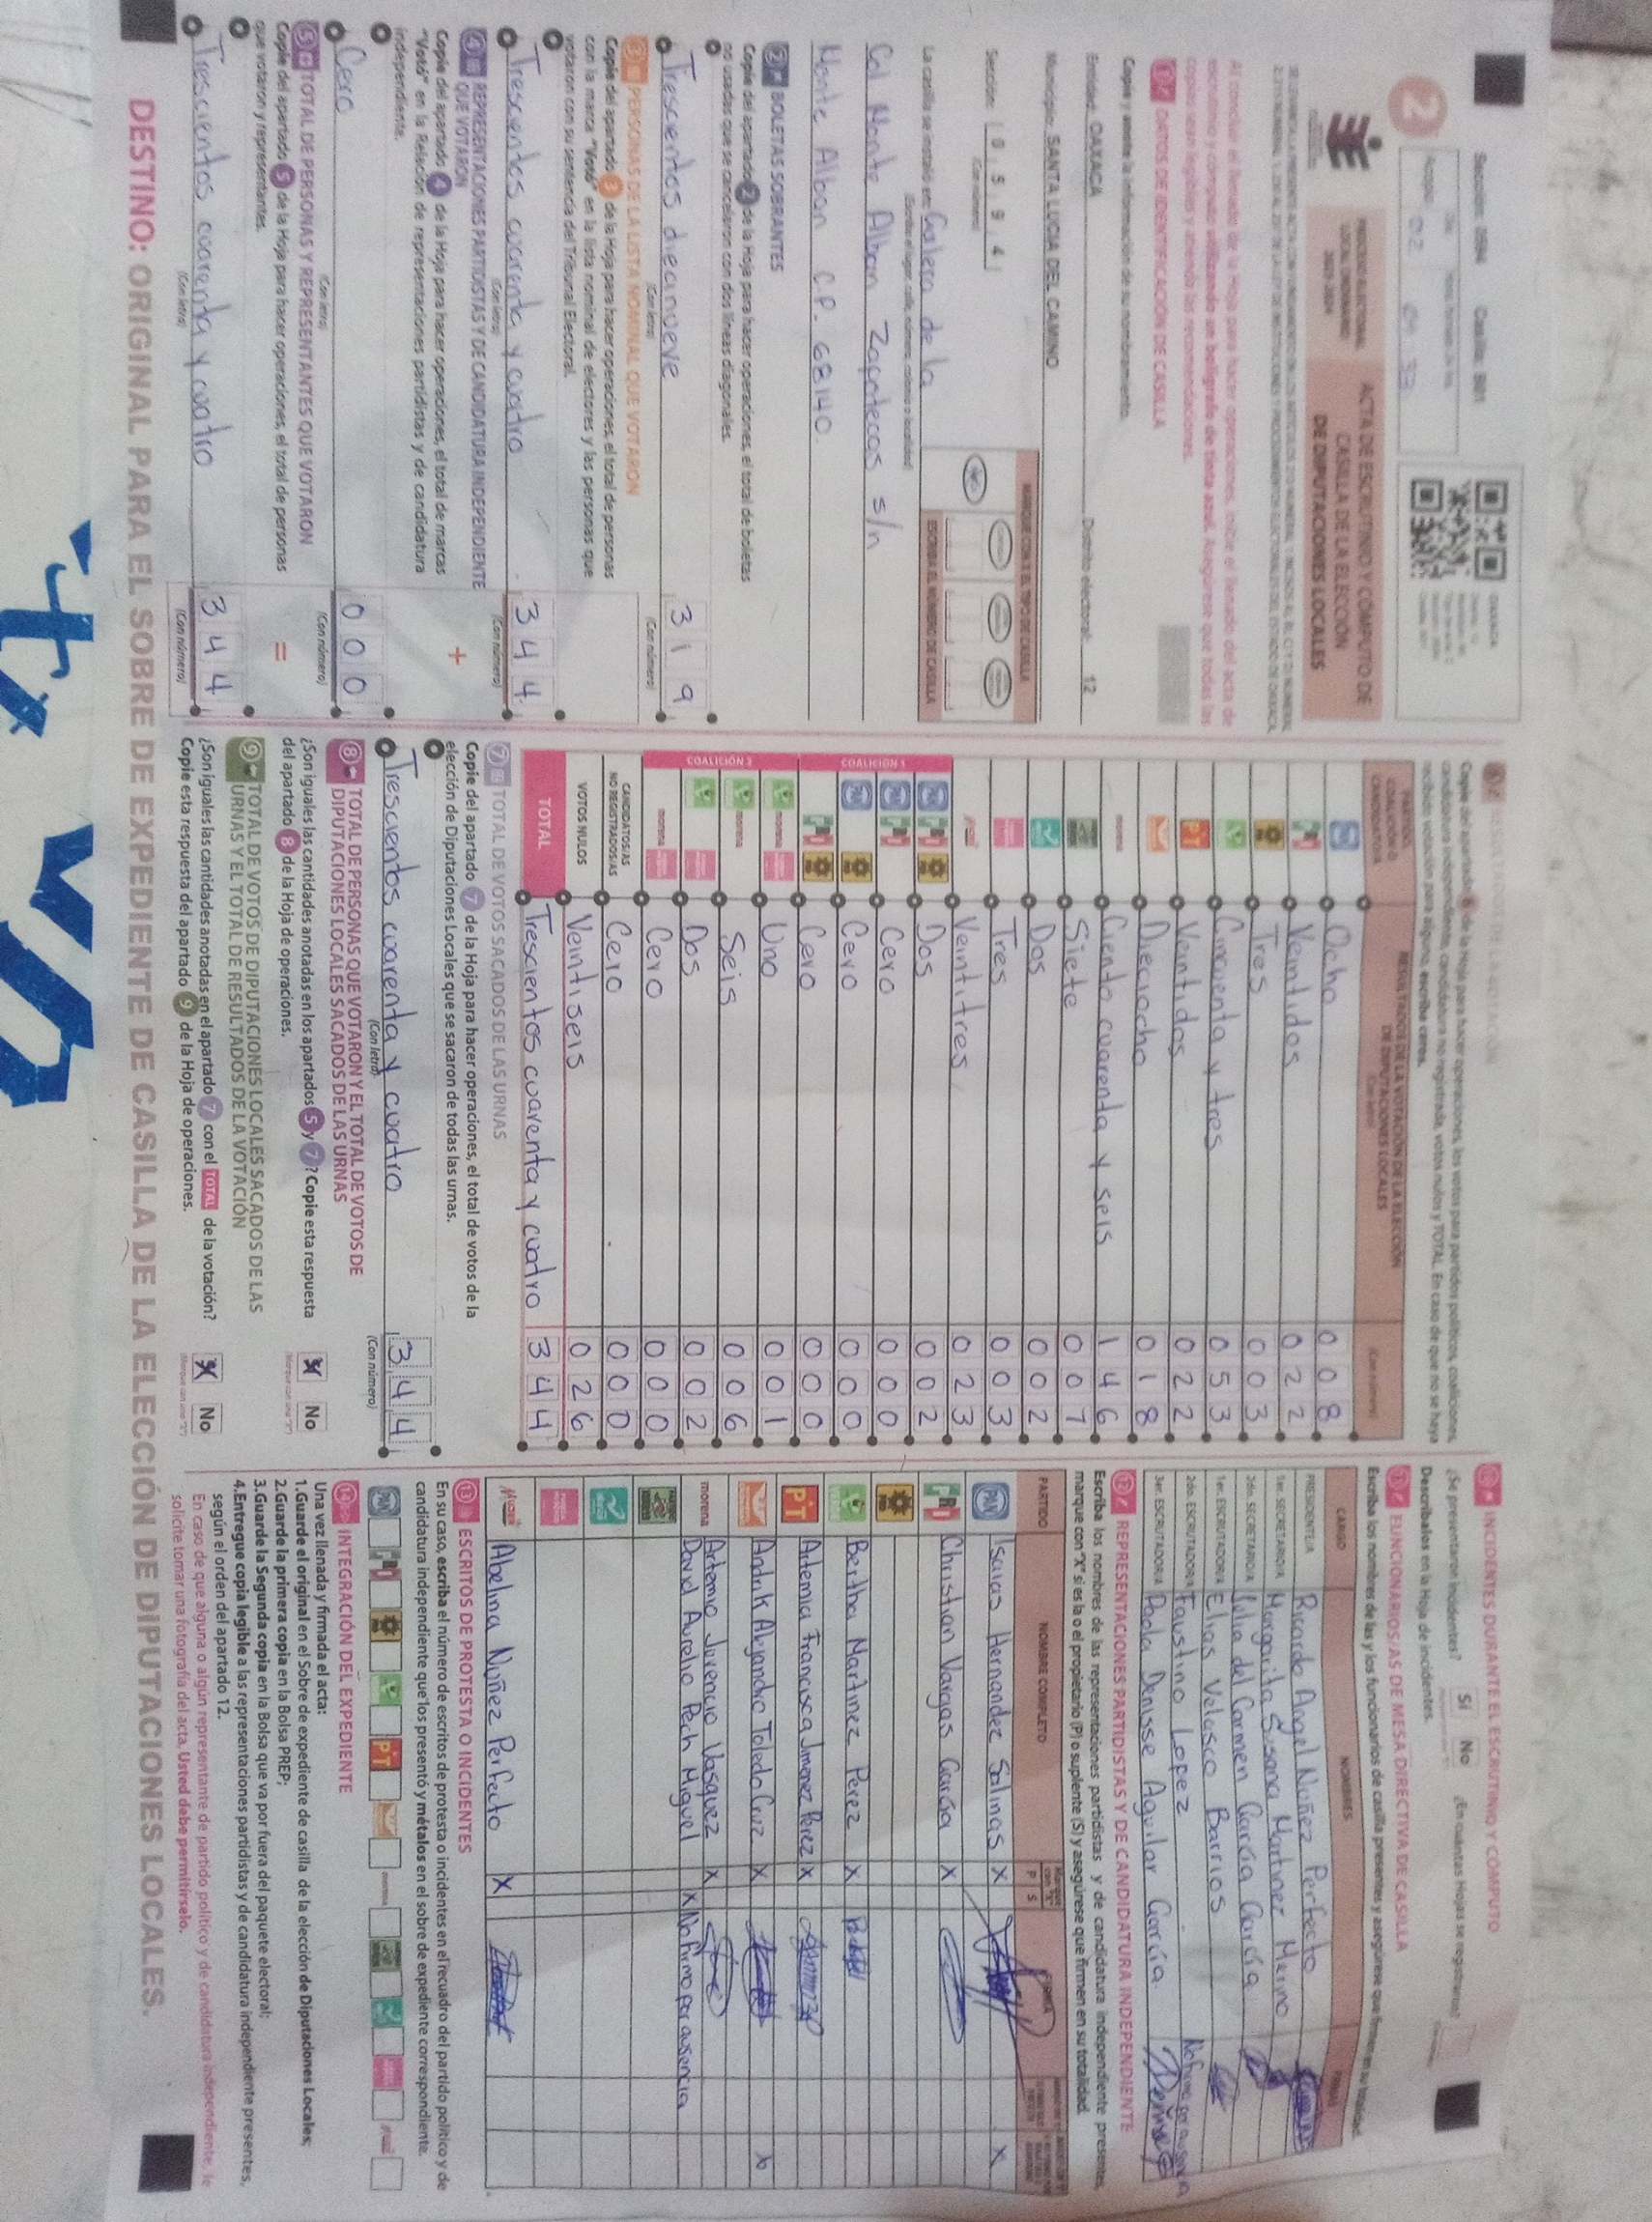 Sección: 0594 Casilla: B01
2
PROCESO ELECTORAL
LOCAL ORDINARIO
2023-2024
ACTA DE ESCRUTINIO Y CÓMPUTO DE
CASILLA DE LA ELECCIÓN
DE DIPUTACIONES LOCALES
Al concluir el llenado de la Hoja para hacer operaciones, inicie el llenado del acta de
escrutinio y cómputo utilizando un bolígrafo de tinta azul. Asegúrese que todas las
copias sean legibles y atienda las recomendaciones.
1 DATOS DE IDENTIFICACIÓN DE CASILLA
Copie y anote la información de su nombramiento.
Entidad: OAXACA Distrito electoral: 12
Municipio: SANTA LUCIA DEL CAMINO
Sección: 0 5 9 4
(Con número)
MARQUE CON X EL TIPO DE CASILLA
ESCRIBA EL NÚMERO DE CASILLA
La casilla se instaló en: Galera de la
(Escriba el lugar, calle, número, colonia o localidad)
Col Monte Alban Zapotecos s/n
Monte Alban C.P. 68140
2 BOLETAS SOBRANTES
Copie del apartado 2 de la Hoja para hacer operaciones, el total de boletas
no usadas que se cancelaron con dos líneas diagonales.
Trescientos diecinueve 3 1 9
(Con letra) (Con número)
3 PERSONAS DE LA LISTA NOMINAL QUE VOTARON
Copie del apartado 3 de la Hoja para hacer operaciones, el total de personas
con la marca "Votó" en la lista nominal de electores y las personas que
votaron con su sentencia del Tribunal Electoral.
Trescientos cuarenta y cuatro 3 4 4
(Con letra) (Con número)
4 REPRESENTACIONES PARTIDISTAS Y DE CANDIDATURA INDEPENDIENTE
QUE VOTARON
+
Copie del apartado 4 de la Hoja para hacer operaciones, el total de marcas
"Votó" en la Relación de representaciones partidistas y de candidatura
independiente.
Cero 0 0 0
(Con letra) (Con número)
5 TOTAL DE PERSONAS Y REPRESENTANTES QUE VOTARON
=
Copie del apartado 5 de la Hoja para hacer operaciones, el total de personas
que votaron y representantes.
Trescientos cuarenta y cuatro 3 4 4
(Con letra) (Con número)
Copie del apartado 6 de la Hoja para hacer operaciones, los votos para partidos políticos, coaliciones,
candidatura independiente, candidatura no registrada, votos nulos y TOTAL. En caso de que no se haya
recibido votación para alguno, escriba ceros.
PARTIDO, COALICIÓN O CANDIDATURA
RESULTADOS DE LA VOTACIÓN DE LA ELECCIÓN
DE DIPUTACIONES LOCALES
(Con letra) (Con número)
PAN Ocho 0 0 8
PRI Veintidos 0 2 2
PRD Tres 0 0 3
VERDE Cincuenta y tres 0 5 3
PT Veintidos 0 2 2
Dieciocho 0 1 8
morena Ciento cuarenta y seis 1 4 6
Siete 0 0 7
Dos 0 0 2
Tres 0 0 3
Veintitres 0 2 3
COALICIÓN 1
PAN PRI PRD Dos 0 0 2
PAN PRI Cero 0 0 0
PAN PRD Cero 0 0 0
PRI PRD Cero 0 0 0
COALICIÓN 2
morena Uno 0 0 1
morena Seis 0 0 6
Dos 0 0 2
morena Cero 0 0 0
CANDIDATOS/AS
NO REGISTRADOS/AS Cero 0 0 0
VOTOS NULOS Veintiseis 0 2 6
TOTAL Trescientos cuarenta y cuatro 3 4 4
7 TOTAL DE VOTOS SACADOS DE LAS URNAS
Copie del apartado 7 de la Hoja para hacer operaciones, el total de votos de la
elección de Diputaciones Locales que se sacaron de todas las urnas.
Trescientos cuarenta y cuatro 3 4 4
(Con letra) (Con número)
8 TOTAL DE PERSONAS QUE VOTARON Y EL TOTAL DE VOTOS DE
DIPUTACIONES LOCALES SACADOS DE LAS URNAS
¿Son iguales las cantidades anotadas en los apartados 5 y 7? Copie esta respuesta
del apartado 8 de la Hoja de operaciones.
X No
9 TOTAL DE VOTOS DE DIPUTACIONES LOCALES SACADOS DE LAS
URNAS Y EL TOTAL DE RESULTADOS DE LA VOTACIÓN
¿Son iguales las cantidades anotadas en el apartado 7 con el TOTAL de la votación?
Copie esta respuesta del apartado 9 de la Hoja de operaciones.
X No
10 INCIDENTES DURANTE EL ESCRUTINIO Y CÓMPUTO
¿Se presentaron incidentes? Sí No ¿En cuántas Hojas se registraron?
Descríbalos en la Hoja de incidentes.
11 FUNCIONARIOS/AS DE MESA DIRECTIVA DE CASILLA
Escriba los nombres de las y los funcionarios de casilla presentes y asegúrese que firmen en su totalidad.
CARGO NOMBRES FIRMA
PRESIDENTE/A Ricardo Angel Nuñez Perfecto
1er. SECRETARIO/A Margarita Susana Martinez Merino
2do. SECRETARIO/A Lidia del Carmen Garcia Garcia
1er. ESCRUTADOR/A Elias Velasco Barrios
2do. ESCRUTADOR/A Faustino Lopez No firmo por ausencia
3er. ESCRUTADOR/A Paola Denisse Aguilar Garcia Denisse
12 REPRESENTACIONES PARTIDISTAS Y DE CANDIDATURA INDEPENDIENTE
Escriba los nombres de las representaciones partidistas y de candidatura independiente presentes,
marque con "X" si es la o el propietario (P) o suplente (S) y asegúrese que firmen en su totalidad.
PARTIDO NOMBRE COMPLETO Marque con "X" P S FIRMA
PAN Isaias Hernandez Salinas X X
PRI Christian Vargas Garcia X
PRD
VERDE Bertha Martinez Perez X
PT Artemia Francisca Jimenez Perez X
Andrik Alejandro Toledo Cruz X
morena Artemio Juvencio Vasquez X
David Aurelio Pech Miguel X No firmo por ausencia
Abelina Nuñez Perfecto X
13 ESCRITOS DE PROTESTA O INCIDENTES
En su caso, escriba el número de escritos de protesta o incidentes en el recuadro del partido político y de
candidatura independiente que los presentó y métalos en el sobre de expediente correspondiente.
14 INTEGRACIÓN DEL EXPEDIENTE
Una vez llenada y firmada el acta:
1.Guarde el original en el Sobre de expediente de casilla de la elección de Diputaciones Locales;
2.Guarde la primera copia en la Bolsa PREP;
3.Guarde la Segunda copia en la Bolsa que va por fuera del paquete electoral;
4.Entregue copia legible a las representaciones partidistas y de candidatura independiente presentes,
según el orden del apartado 12.
En caso de que alguna o algún representante de partido político y de candidatura independiente, le
solicite tomar una fotografía del acta. Usted debe permitírselo.
DESTINO: ORIGINAL PARA EL SOBRE DE EXPEDIENTE DE CASILLA DE LA ELECCIÓN DE DIPUTACIONES LOCALES.